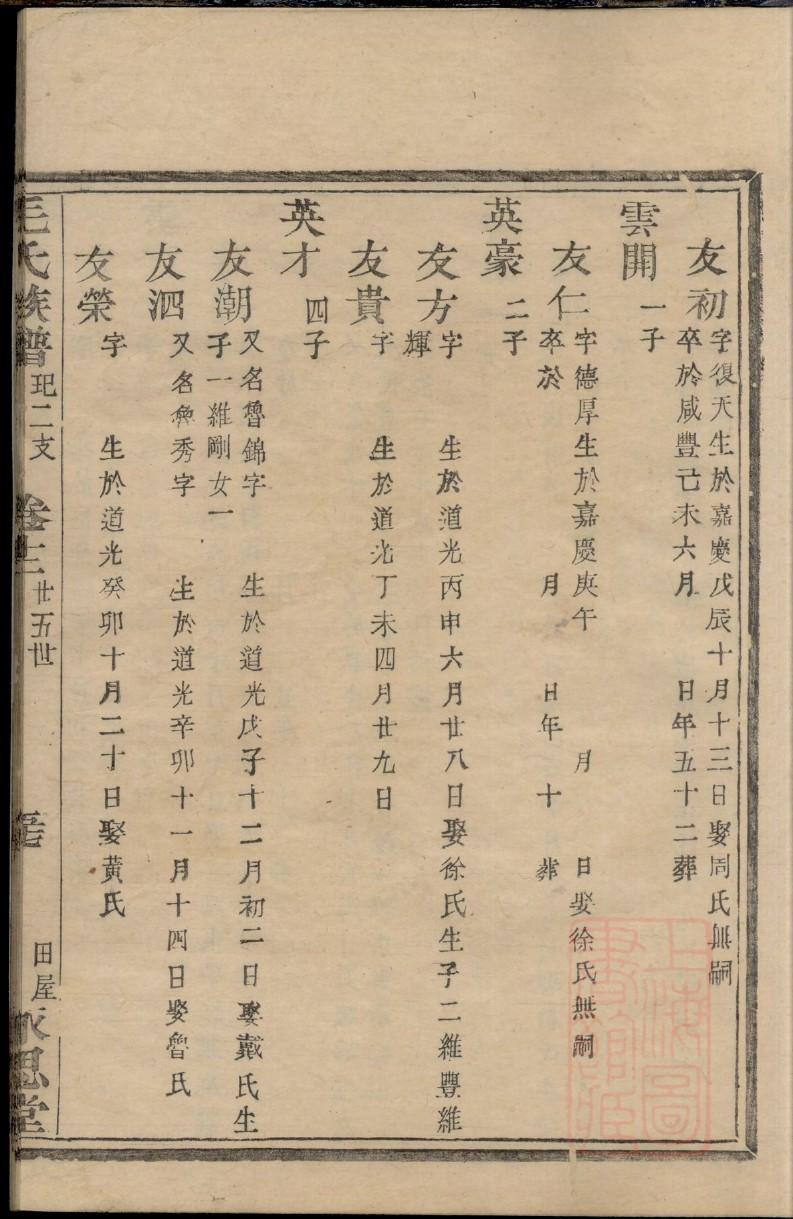 友初
字復天生於嘉慶戊辰十月十三日娶周氏無嗣
卒於咸豐己未六月 日年五十二葬
雲開
一子
友仁
字德厚生於嘉慶庚午 月 日娶徐氏無嗣
卒於 月 日年 十 葬
英豪
二子
友方
字 生於道光丙申六月廿八日娶徐氏生子二維豐維
輝
友貴
字 生於道光丁未四月廿九日
英才
四子
友潮
又名魯錦字 生於道光戊子十二月初二日娶戴氏生
子一維剛女一
友泗
又名魯秀字 生於道光辛卯十一月十四日娶魯氏
友榮
字 生於道光癸卯十月二十日娶黃氏
毛氏族譜 玘二支 卷 廿五世 田屋 永思堂
上海圖書館藏